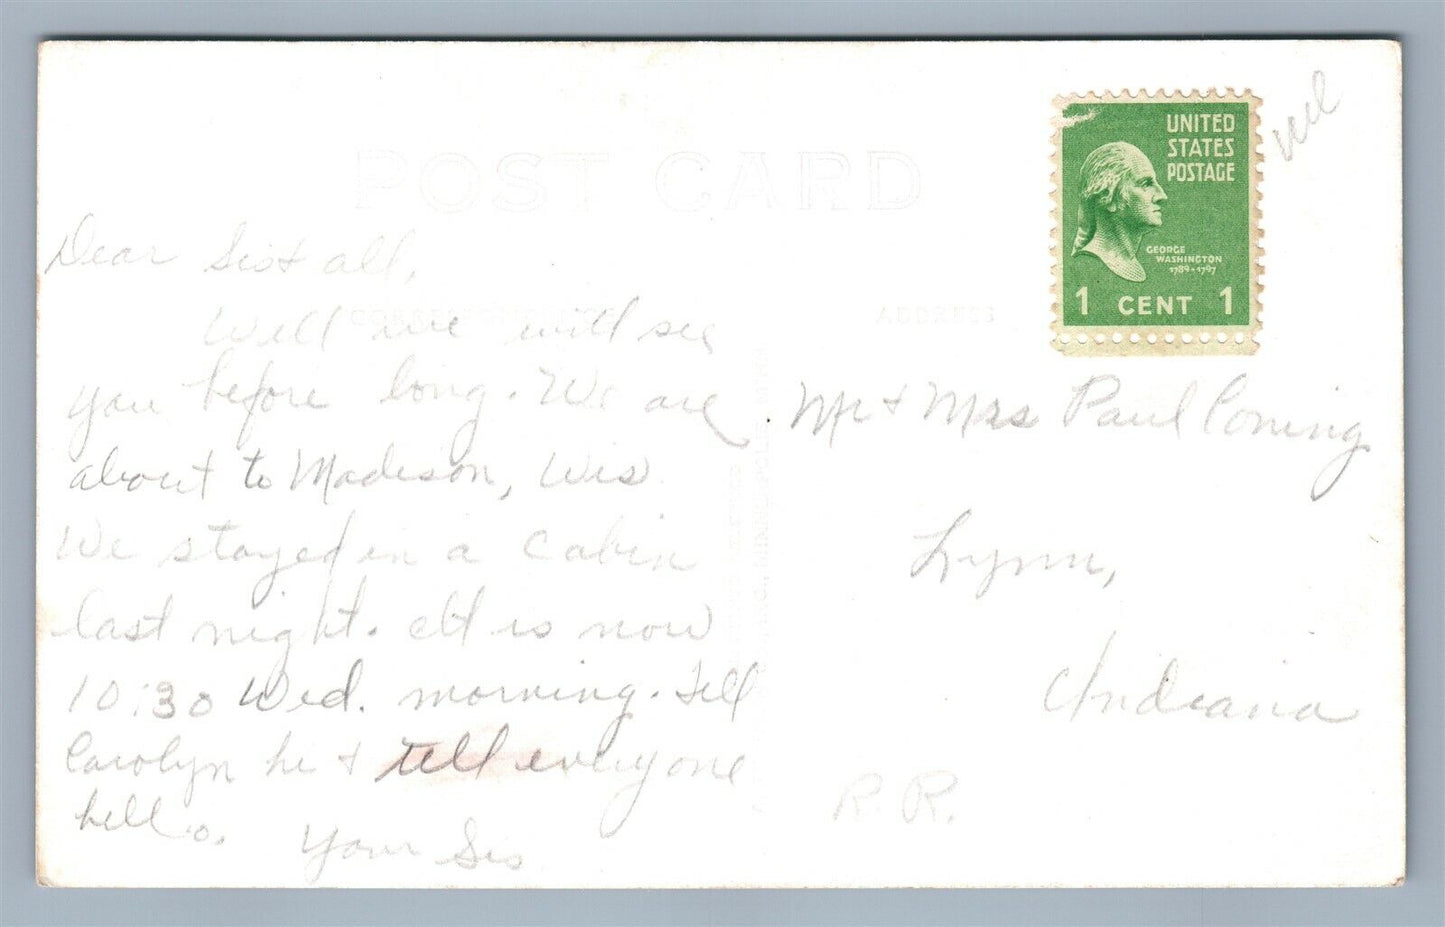 POST CARD
CORRESPONDENCE
ADDRESS
UNITED
STATES
POSTAGE
GEORGE
WASHINGTON
1789-1797
1 CENT 1
Dear Sis & all,
Well we will see
you before long. We are
about to Madison, Wis.
We stayed in a cabin
last night. It is now
10:30 Wed. morning. Tell
Carolyn hi & tell everyone
hello.
Your Sis
Mr & Mrs Paul Coning
Lynn,
Indiana
R. R.